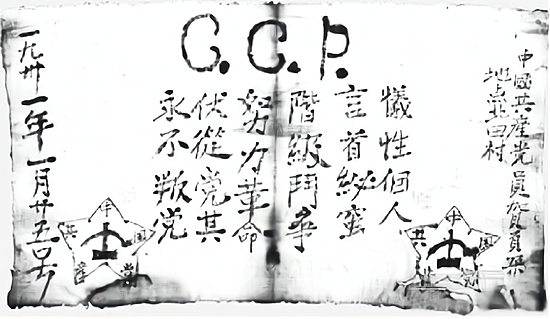 C.C.P.
中國共產党員賀頁朵
地点北田村
犧性個人
言首秘蜜
階級鬥爭
努力革命
伏從党其
永不叛党
一九卅一年一月廿五号
中
國
共
產
党
中
國
共
產
党